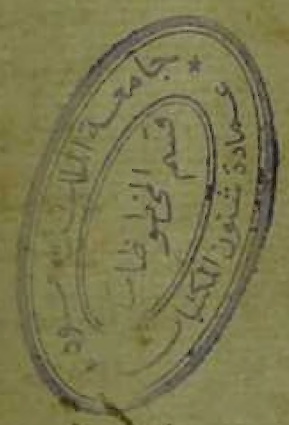 * جامعة الملك سعود
عمادة شئون المكتبات
قسم المخطوطات